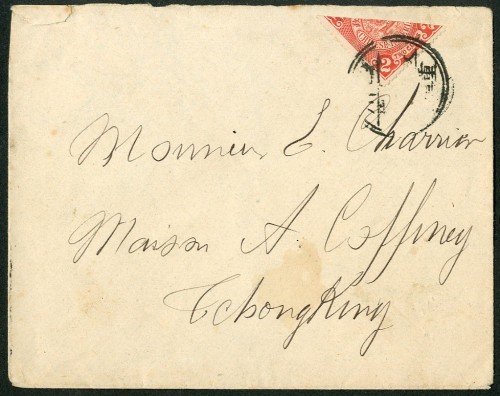 2
Monsieur E. Charrier
Maison A. Coffiney
TchongKing